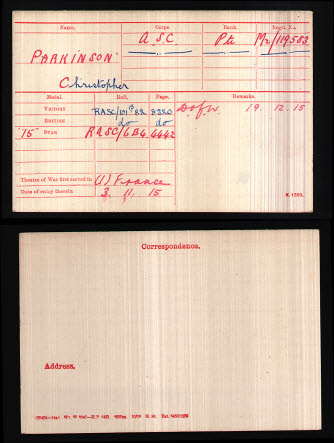 Name. Corps. Rank. Regtl. No.
PARKINSON A.S.C. Pte M2/119583
Christopher
Medal. Roll. Page. Remarks.
Victory RASC/101 B 82 8320 D.of.W. 19.12.15
British do do
"15" Star RASC/6 B4 4442
Theatre of War first served in (1) France
Date of entry therein 3. 11. 15
K. 1380.
Correspondence.
Address.